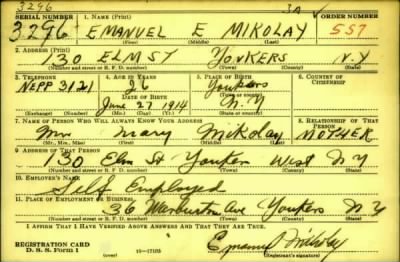 3296
3A ✓
SERIAL NUMBER 1. NAME (Print) ORDER NUMBER
3296 EMANUEL E MIKOLAY 557
(First) (Middle) (Last)
2. ADDRESS (Print)
130 ELM ST YONKERS N.Y
(Number and street or R. F. D. number) (Town) (County) (State)
3. TELEPHONE 4. AGE IN YEARS 5. PLACE OF BIRTH 6. COUNTRY OF CITIZENSHIP
NEPP 3121 26 Yonkers
DATE OF BIRTH (Town or county)
June 27 1914 N.Y
(Exchange) (Number) (Mo.) (Day) (Yr.) (State or country)
7. NAME OF PERSON WHO WILL ALWAYS KNOW YOUR ADDRESS 8. RELATIONSHIP OF THAT PERSON
Mrs Mary Mikolay MOTHER
(Mr., Mrs., Miss) (First) (Middle) (Last)
9. ADDRESS OF THAT PERSON
130 Elm St Yonkers West N Y
(Number and street or R. F. D. number) (Town) (County) (State)
10. EMPLOYER'S NAME
Self Employed
11. PLACE OF EMPLOYMENT OR BUSINESS
36 Warburton Ave Yonkers N Y
(Number and street or R. F. D. number) (Town) (County) (State)
I AFFIRM THAT I HAVE VERIFIED ABOVE ANSWERS AND THAT THEY ARE TRUE.
REGISTRATION CARD
D. S. S. Form 1 (over) 16—17105 Emanuel Mikolay
(Registrant's signature)